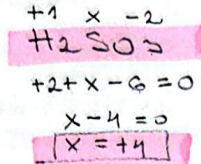 +1 x -2
H2SO3
+2+x-6=0
x-4=0
x=+4